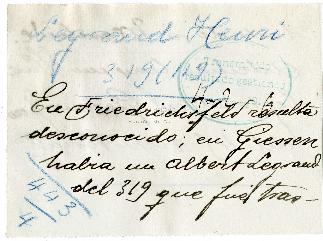 Legrand Henri
319
En Friedrichsfeld resulta
desconocido; en Giessen
habia un Albert Legrand
del 319 que fué tras-
443
4